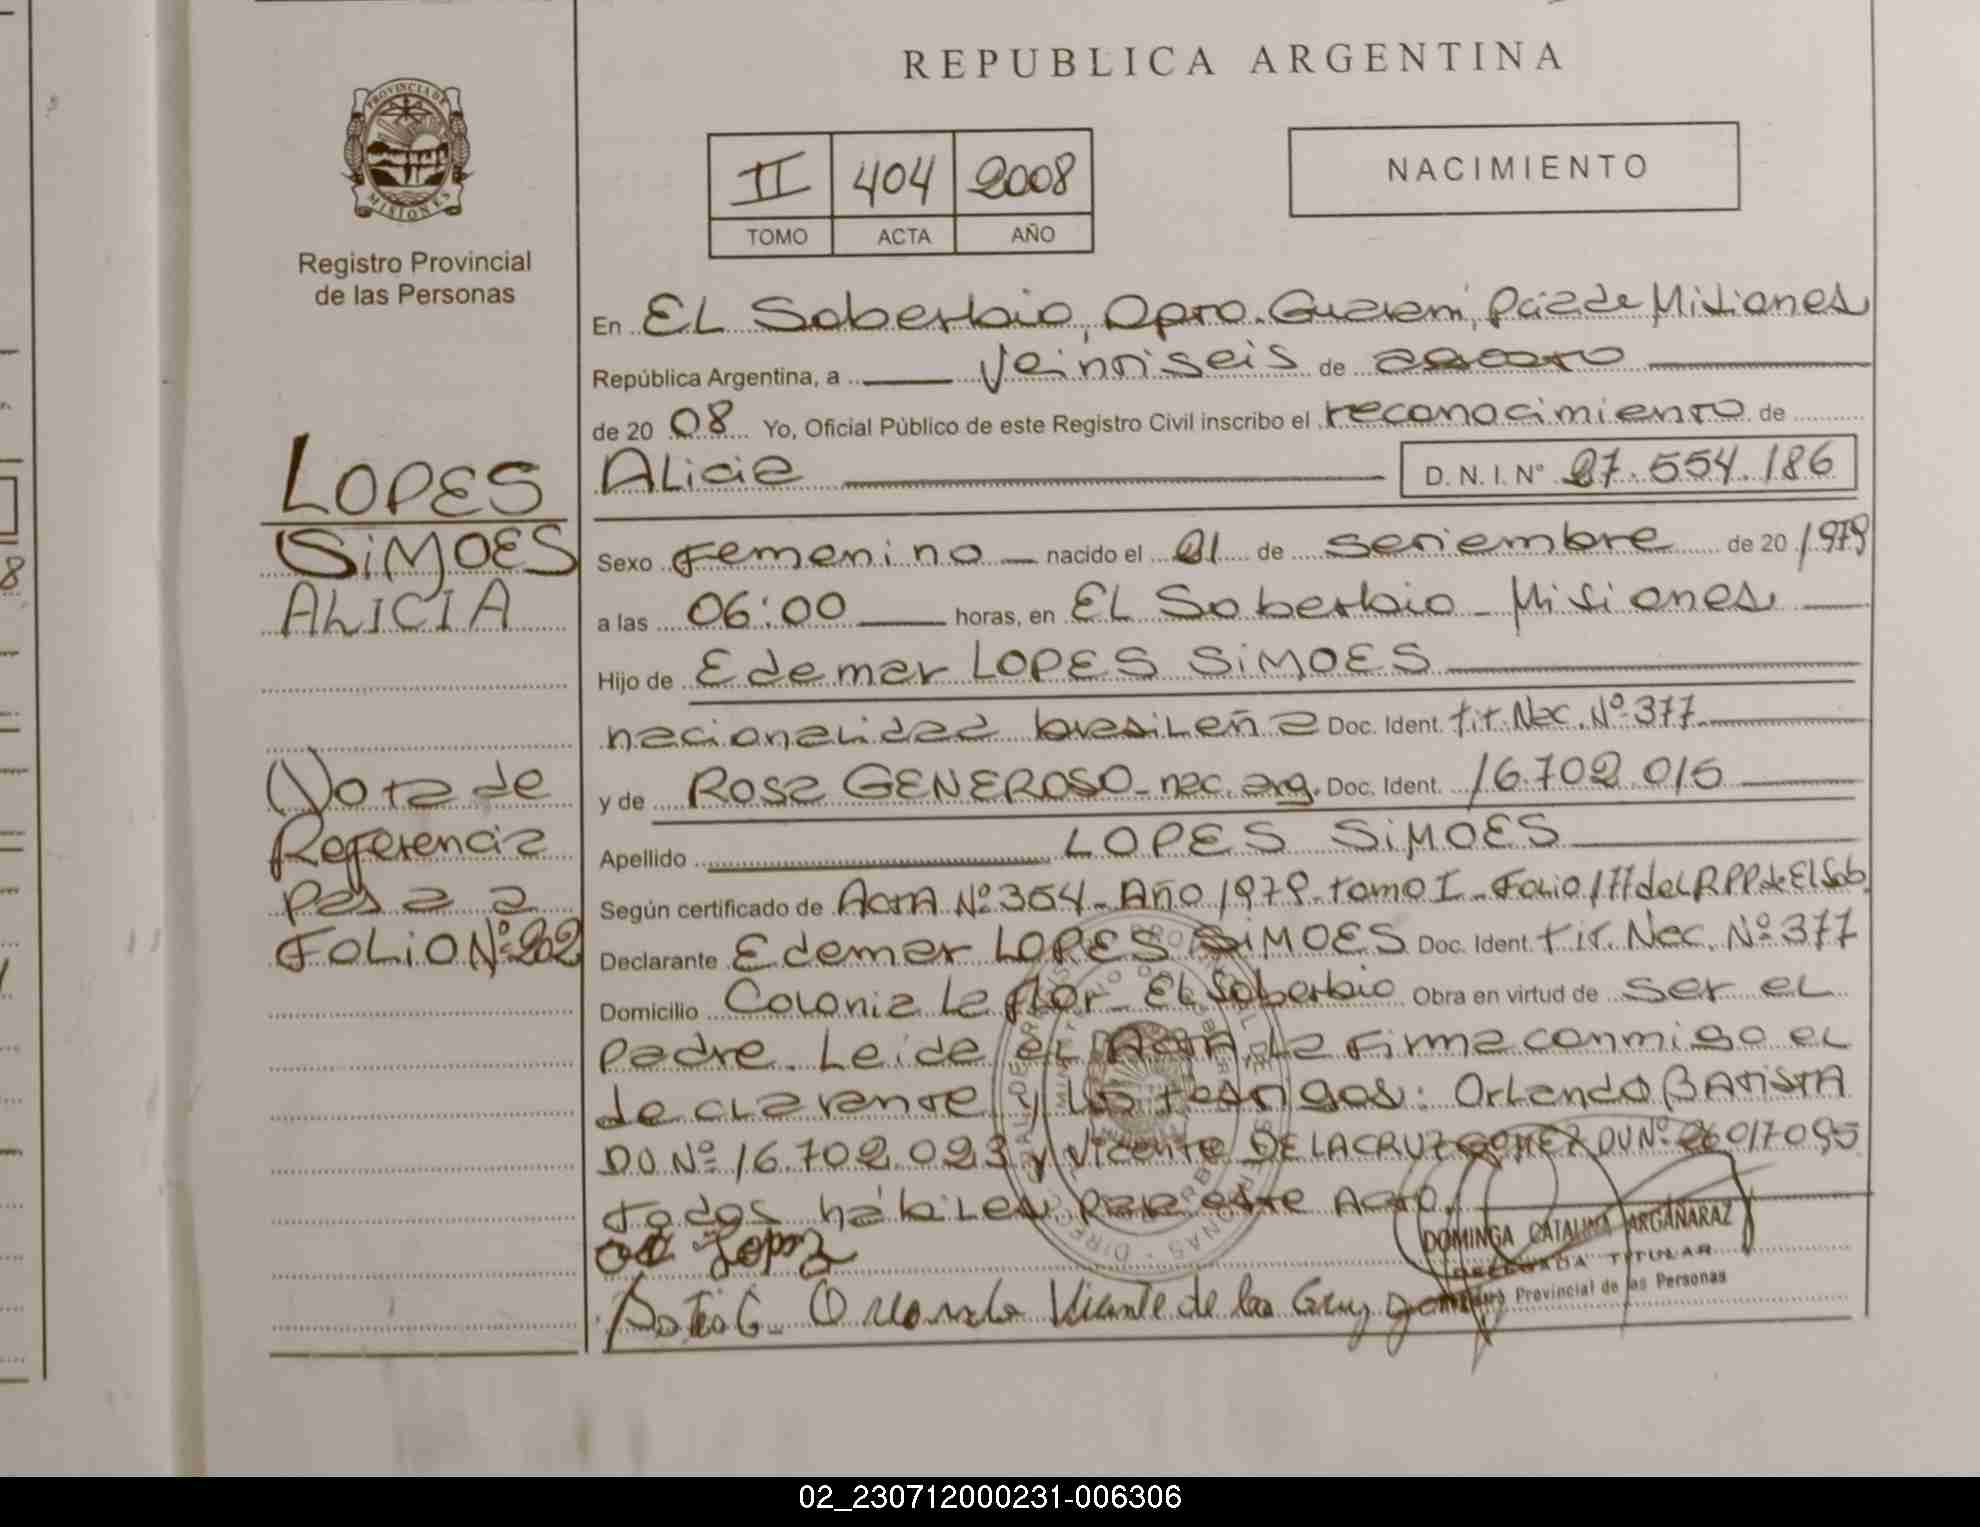 REPUBLICA ARGENTINA
PROVINCIA DE
MISIONES
Registro Provincial
de las Personas
II 404 2008
TOMO ACTA AÑO
NACIMIENTO
LOPES
SiMOES
ALICIA
Nota de
Referencia
pasa a
FOLIO Nº 202
En EL Soberbio, Dpto. Guarani, Pcia de Misiones
República Argentina, a Veintiseis de agosto
de 20 08 Yo, Oficial Público de este Registro Civil inscribo el reconocimiento de
Alicia D. N. I. N° 27.554.186
Sexo Femenino nacido el 21 de setiembre de 20 1979
a las 06:00 horas, en EL Soberbio - Misiones
Hijo de Edemar LOPES SiMOES
nacionalidad brasileña Doc. Ident. tit. Nac. Nº 377
y de Rosa GENEROSO - nac. arg. Doc. Ident. 16.702.015
Apellido LOPES SiMOES
Según certificado de Acta Nº 354 - Año 1979 - tomo I - Folio 177 del R.P.P. de El Sob.
Declarante Edemar LOPES SiMOES Doc. Ident. tit. Nac. Nº 377
Domicilio Colonia La flor - EL Soberbio Obra en virtud de ser el
padre. Leida el Acta, La firma conmigo el
declarante y los testigos: Orlando BATISTA
DU Nº 16.702.023 y Vicente DE LA CRUZ GOMEZ DU Nº 26017095
todos hábiles para este Acto.
Lopez
Orlando Vicente de la Cruz
DOMINGA CATALINA ARGAÑARAZ
DELEGADA TITULAR
Provincial de las Personas
02_230712000231-006306